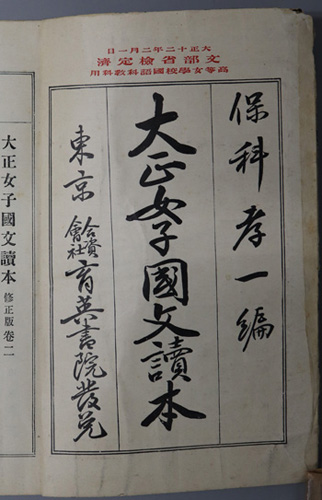 大正十二年二月一日
文部省檢定濟
高等女學校國語科教科用
保科孝一編
大正女子國文讀本
東京 合資會社 育英書院發兌
大正女子國文讀本 修正版 卷二